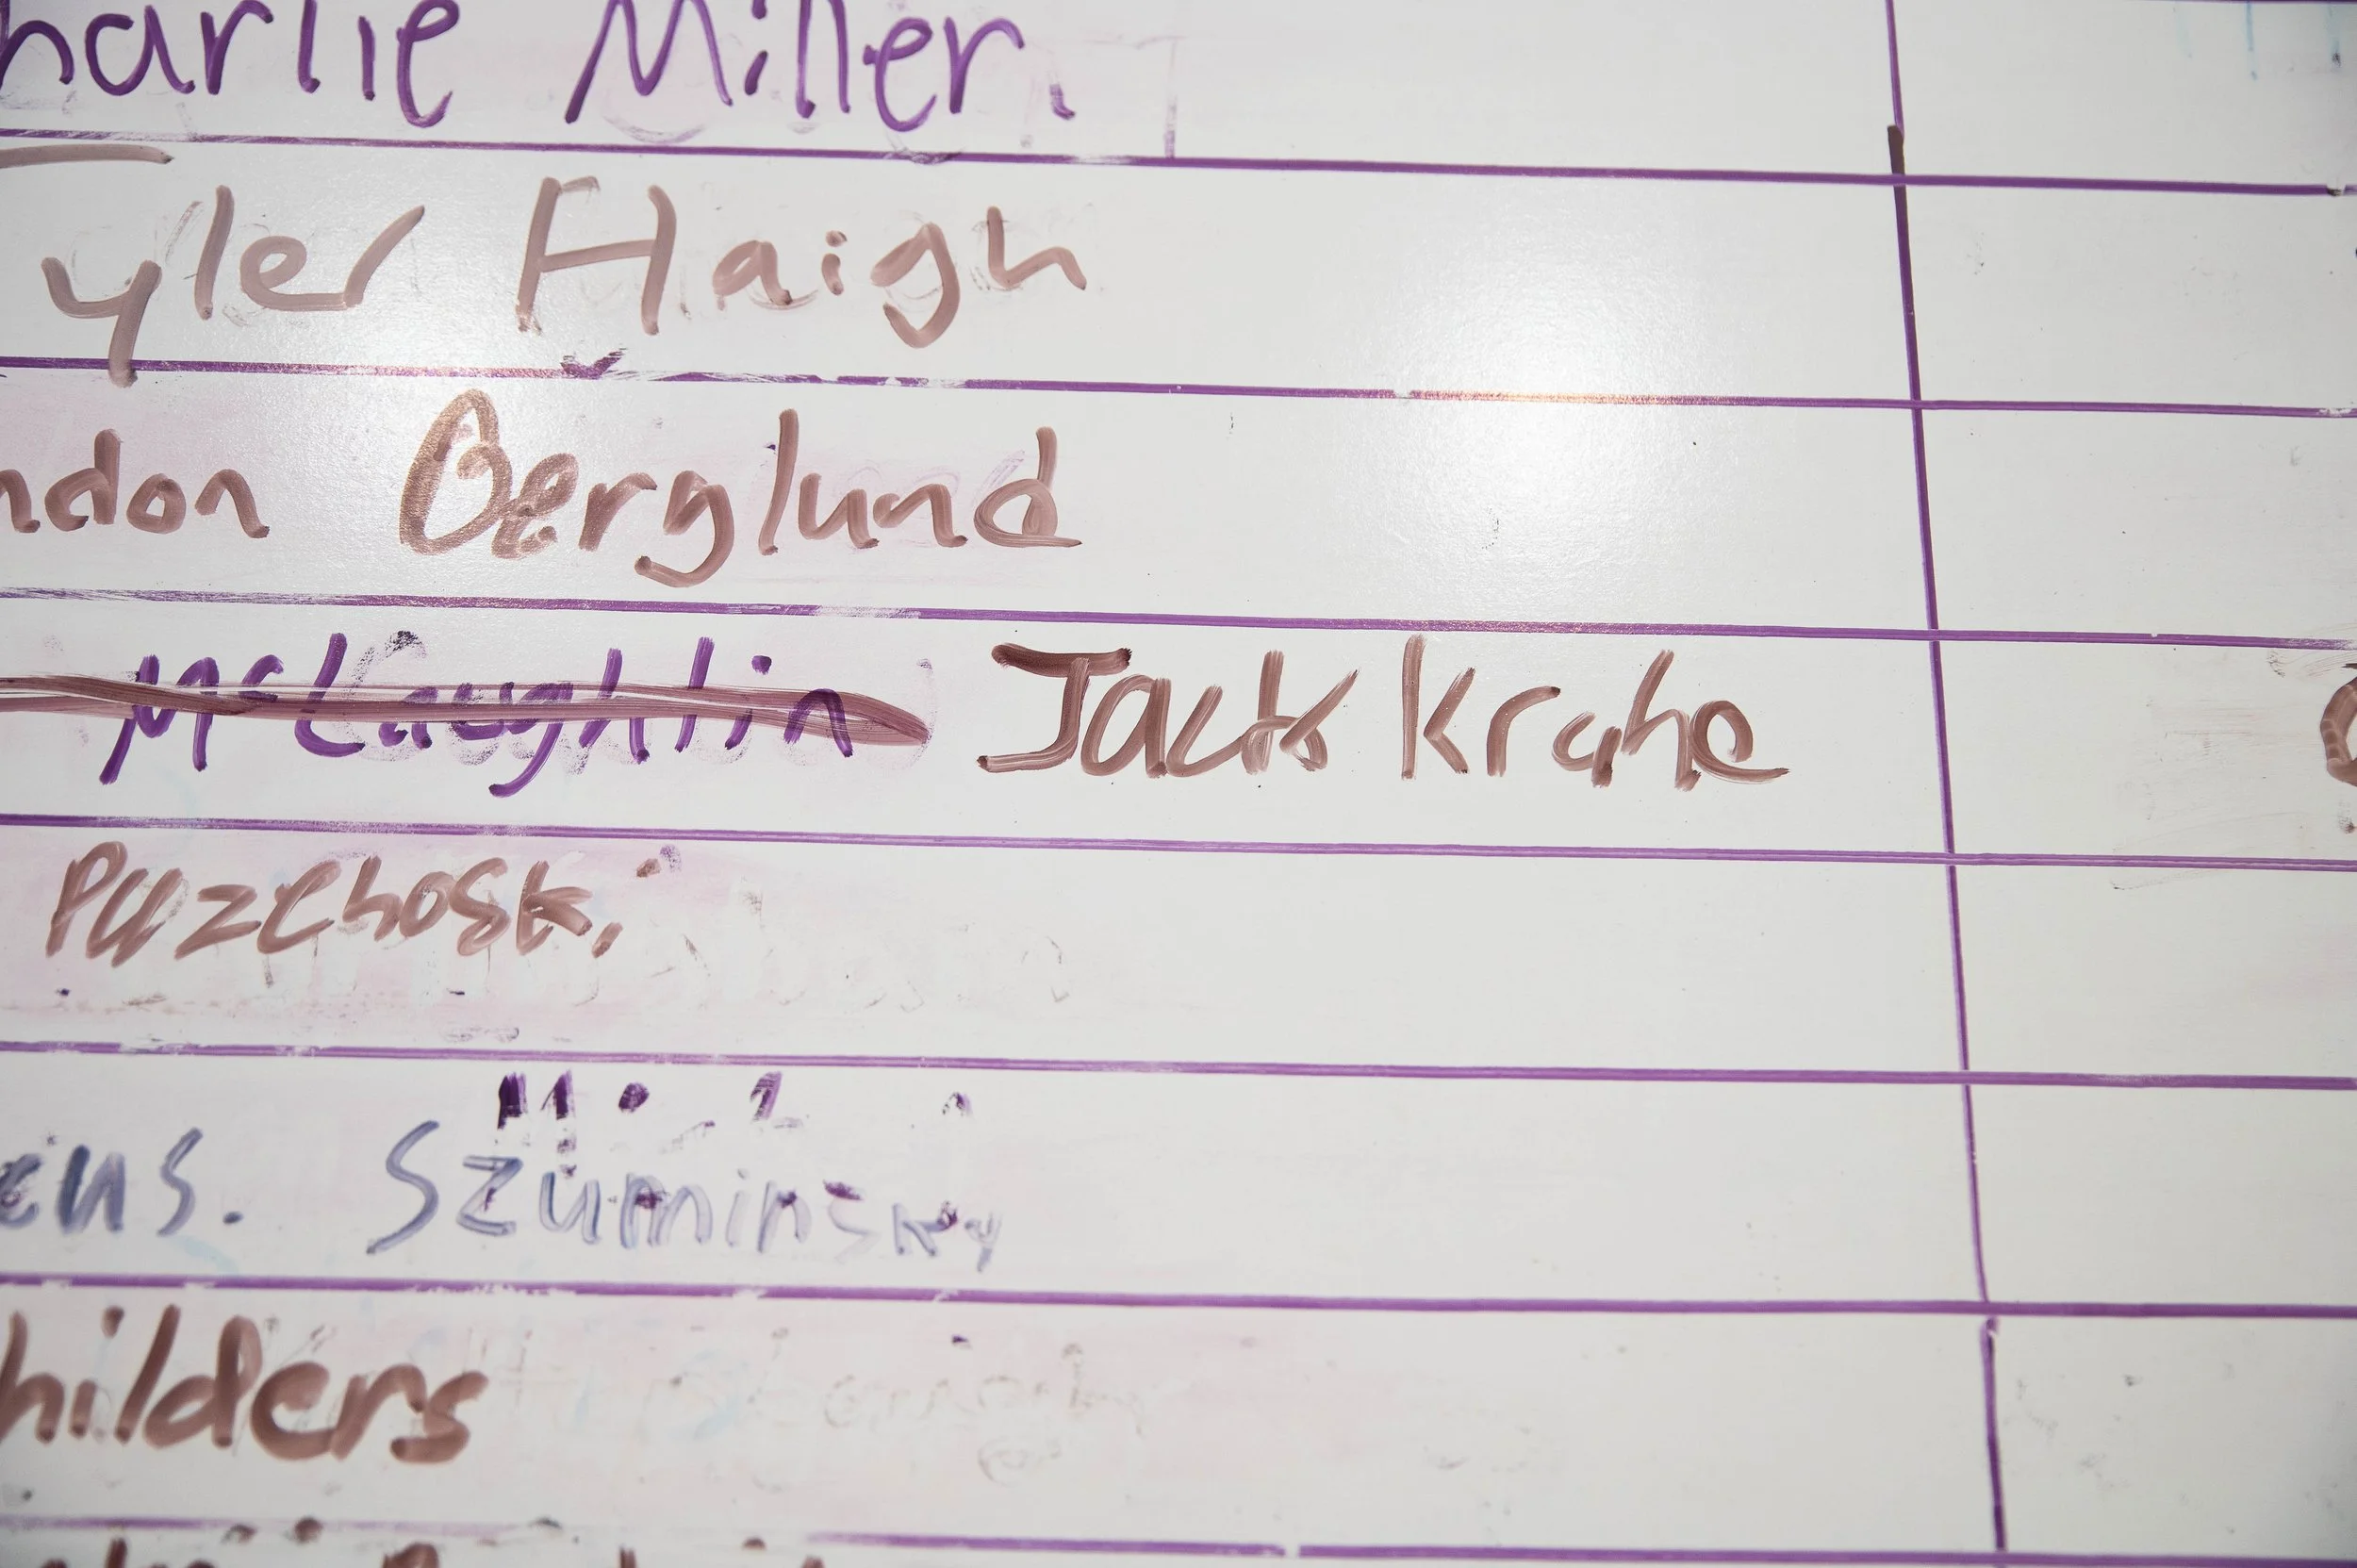 harlie Miller.
Tyler Haigh
ndon Berglund
McLaughlin Jack Krahe
Puzehoski
ens. Szuminsky
hilders